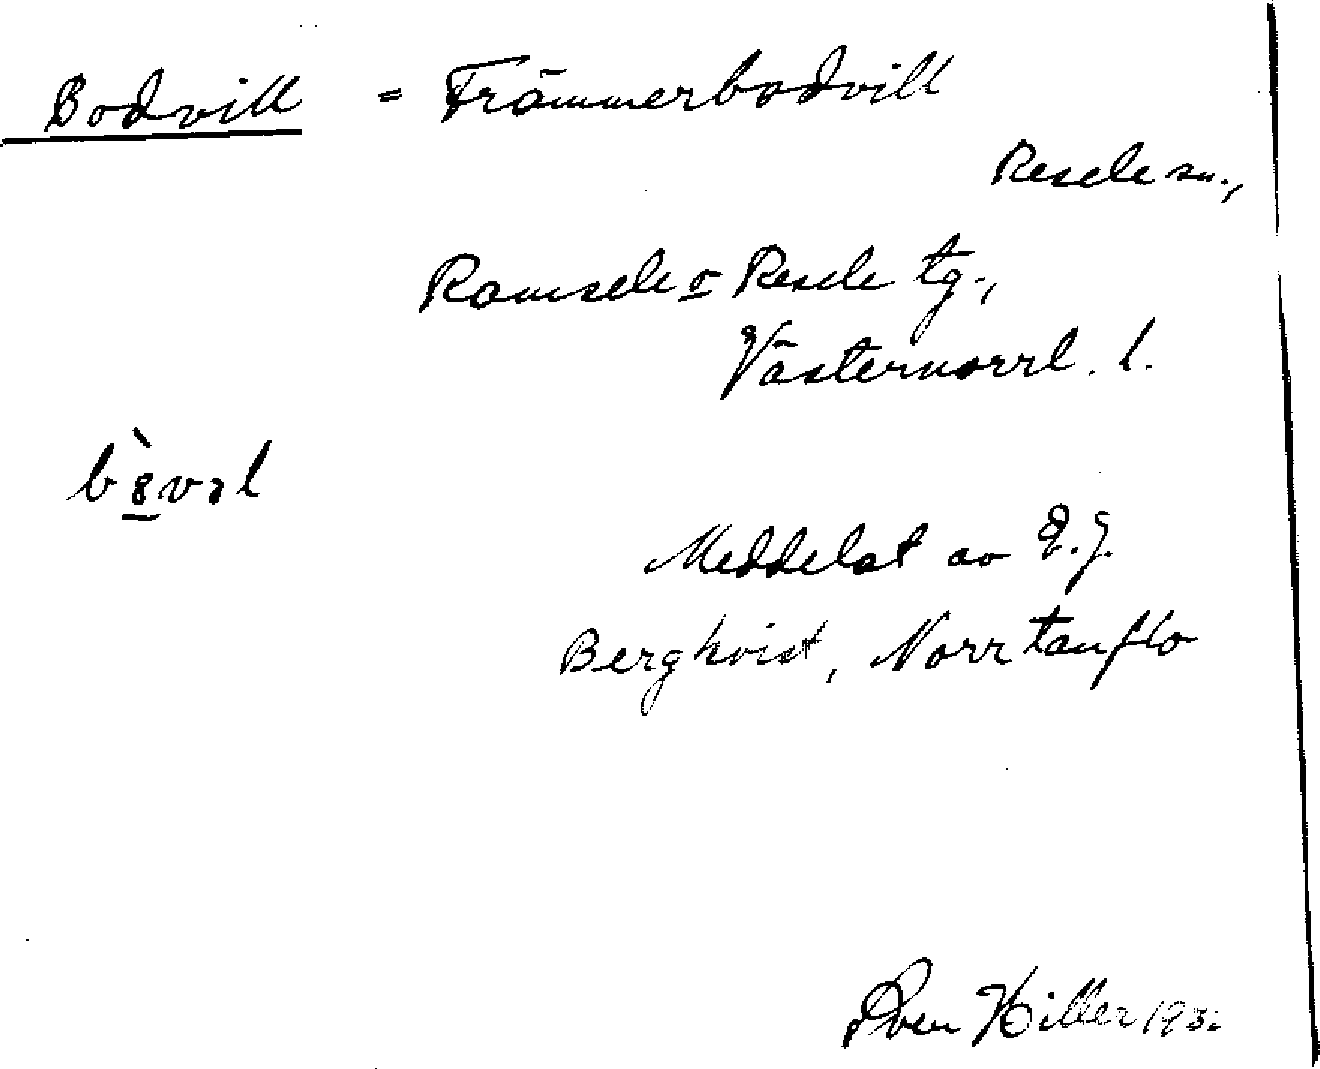 Bodvill = Främmerbodvill
Resele sn.,
Ramsele o Resele tg.,
Västernorrl. l.
Meddelat av E.J.
Bergkvist, Norrtanflo
Sven Hiller